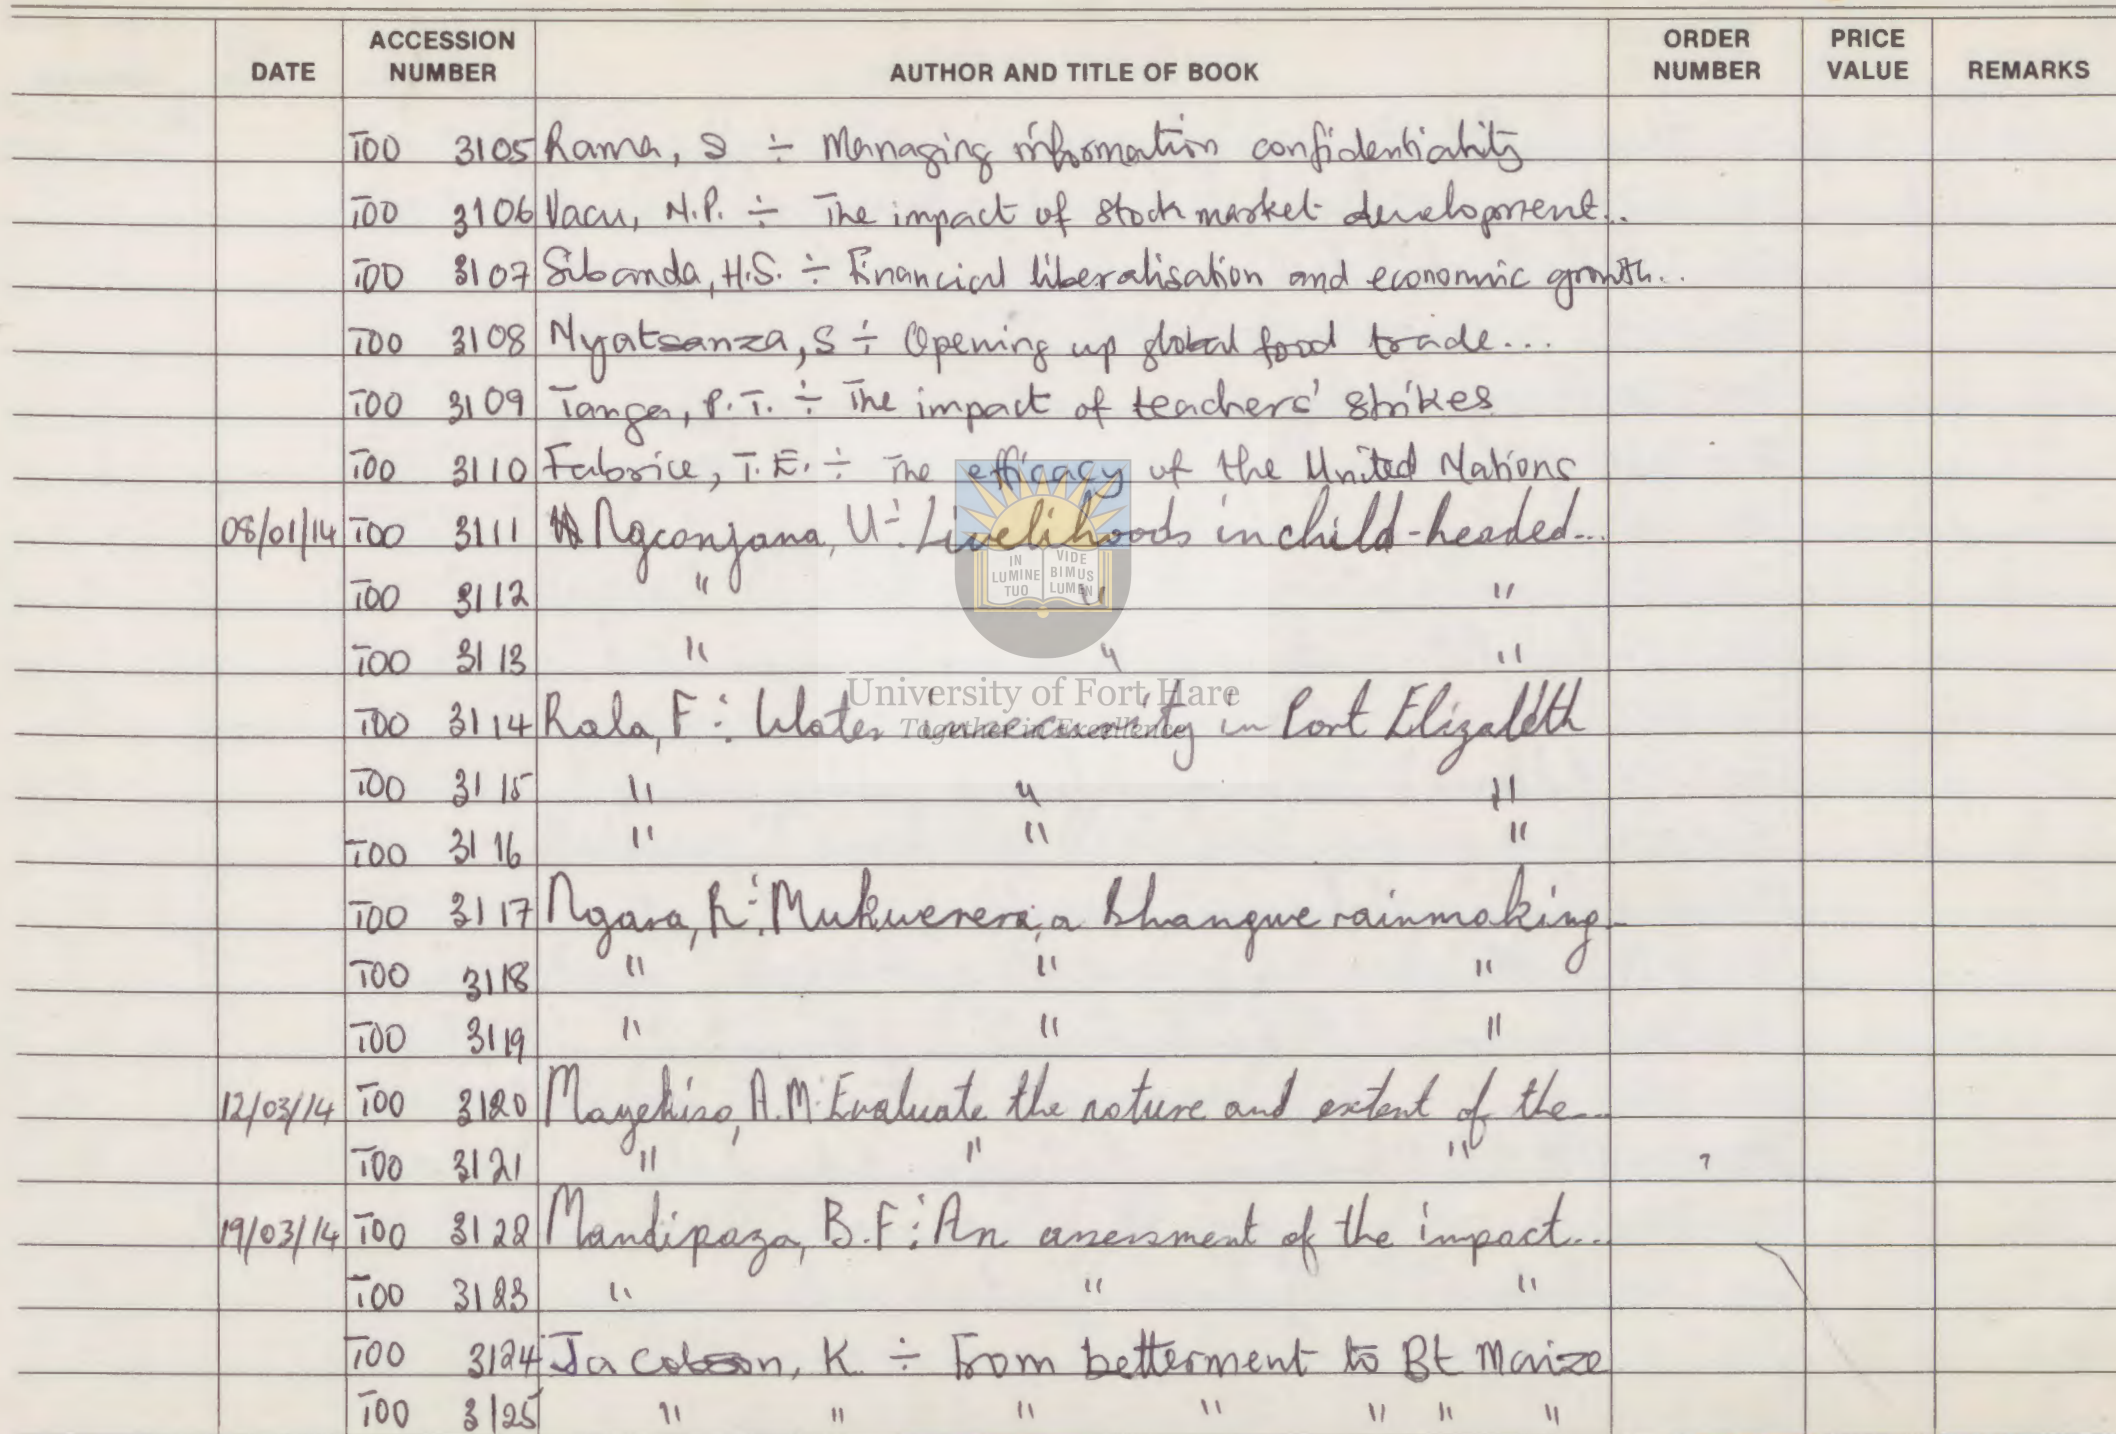 DATE ACCESSION NUMBER AUTHOR AND TITLE OF BOOK ORDER NUMBER PRICE VALUE REMARKS
T00 3105 Rama, S ÷ Managing information confidentiality
T00 3106 Vacu, N.P. ÷ The impact of stock market development..
T00 3107 Sibanda, H.S. ÷ Financial liberalisation and economic growth..
T00 3108 Nyatsanza, S ÷ Opening up global food trade...
T00 3109 Tanga, P.T. ÷ The impact of teachers' strikes
T00 3110 Fabrice, T.E. ÷ The efficacy of the United Nations
08/01/14 T00 3111 Ngconjana, U ÷ Livelihoods in child-headed...
T00 3112 " " "
IN LUMINE TUO VIDE BIMUS LUMEN
T00 3113 " " "
University of Fort Hare
T00 3114 Rala, F ÷ Water insecurity in Port Elizabeth
Together in Excellence
T00 3115 " " "
T00 3116 " " "
T00 3117 Ngara, R ÷ Mukwerera, a Shangwe rainmaking
T00 3118 " " "
T00 3119 " " "
12/03/14 T00 3120 Mayekiso, A.M: Evaluate the nature and extent of the...
T00 3121 " " "
19/03/14 T00 3122 Mandipaza, B.F ÷ An assessment of the impact...
T00 3123 " " "
T00 3124 Jacobson, K. ÷ From betterment to Bt Maize
T00 3125 " " " " " " "